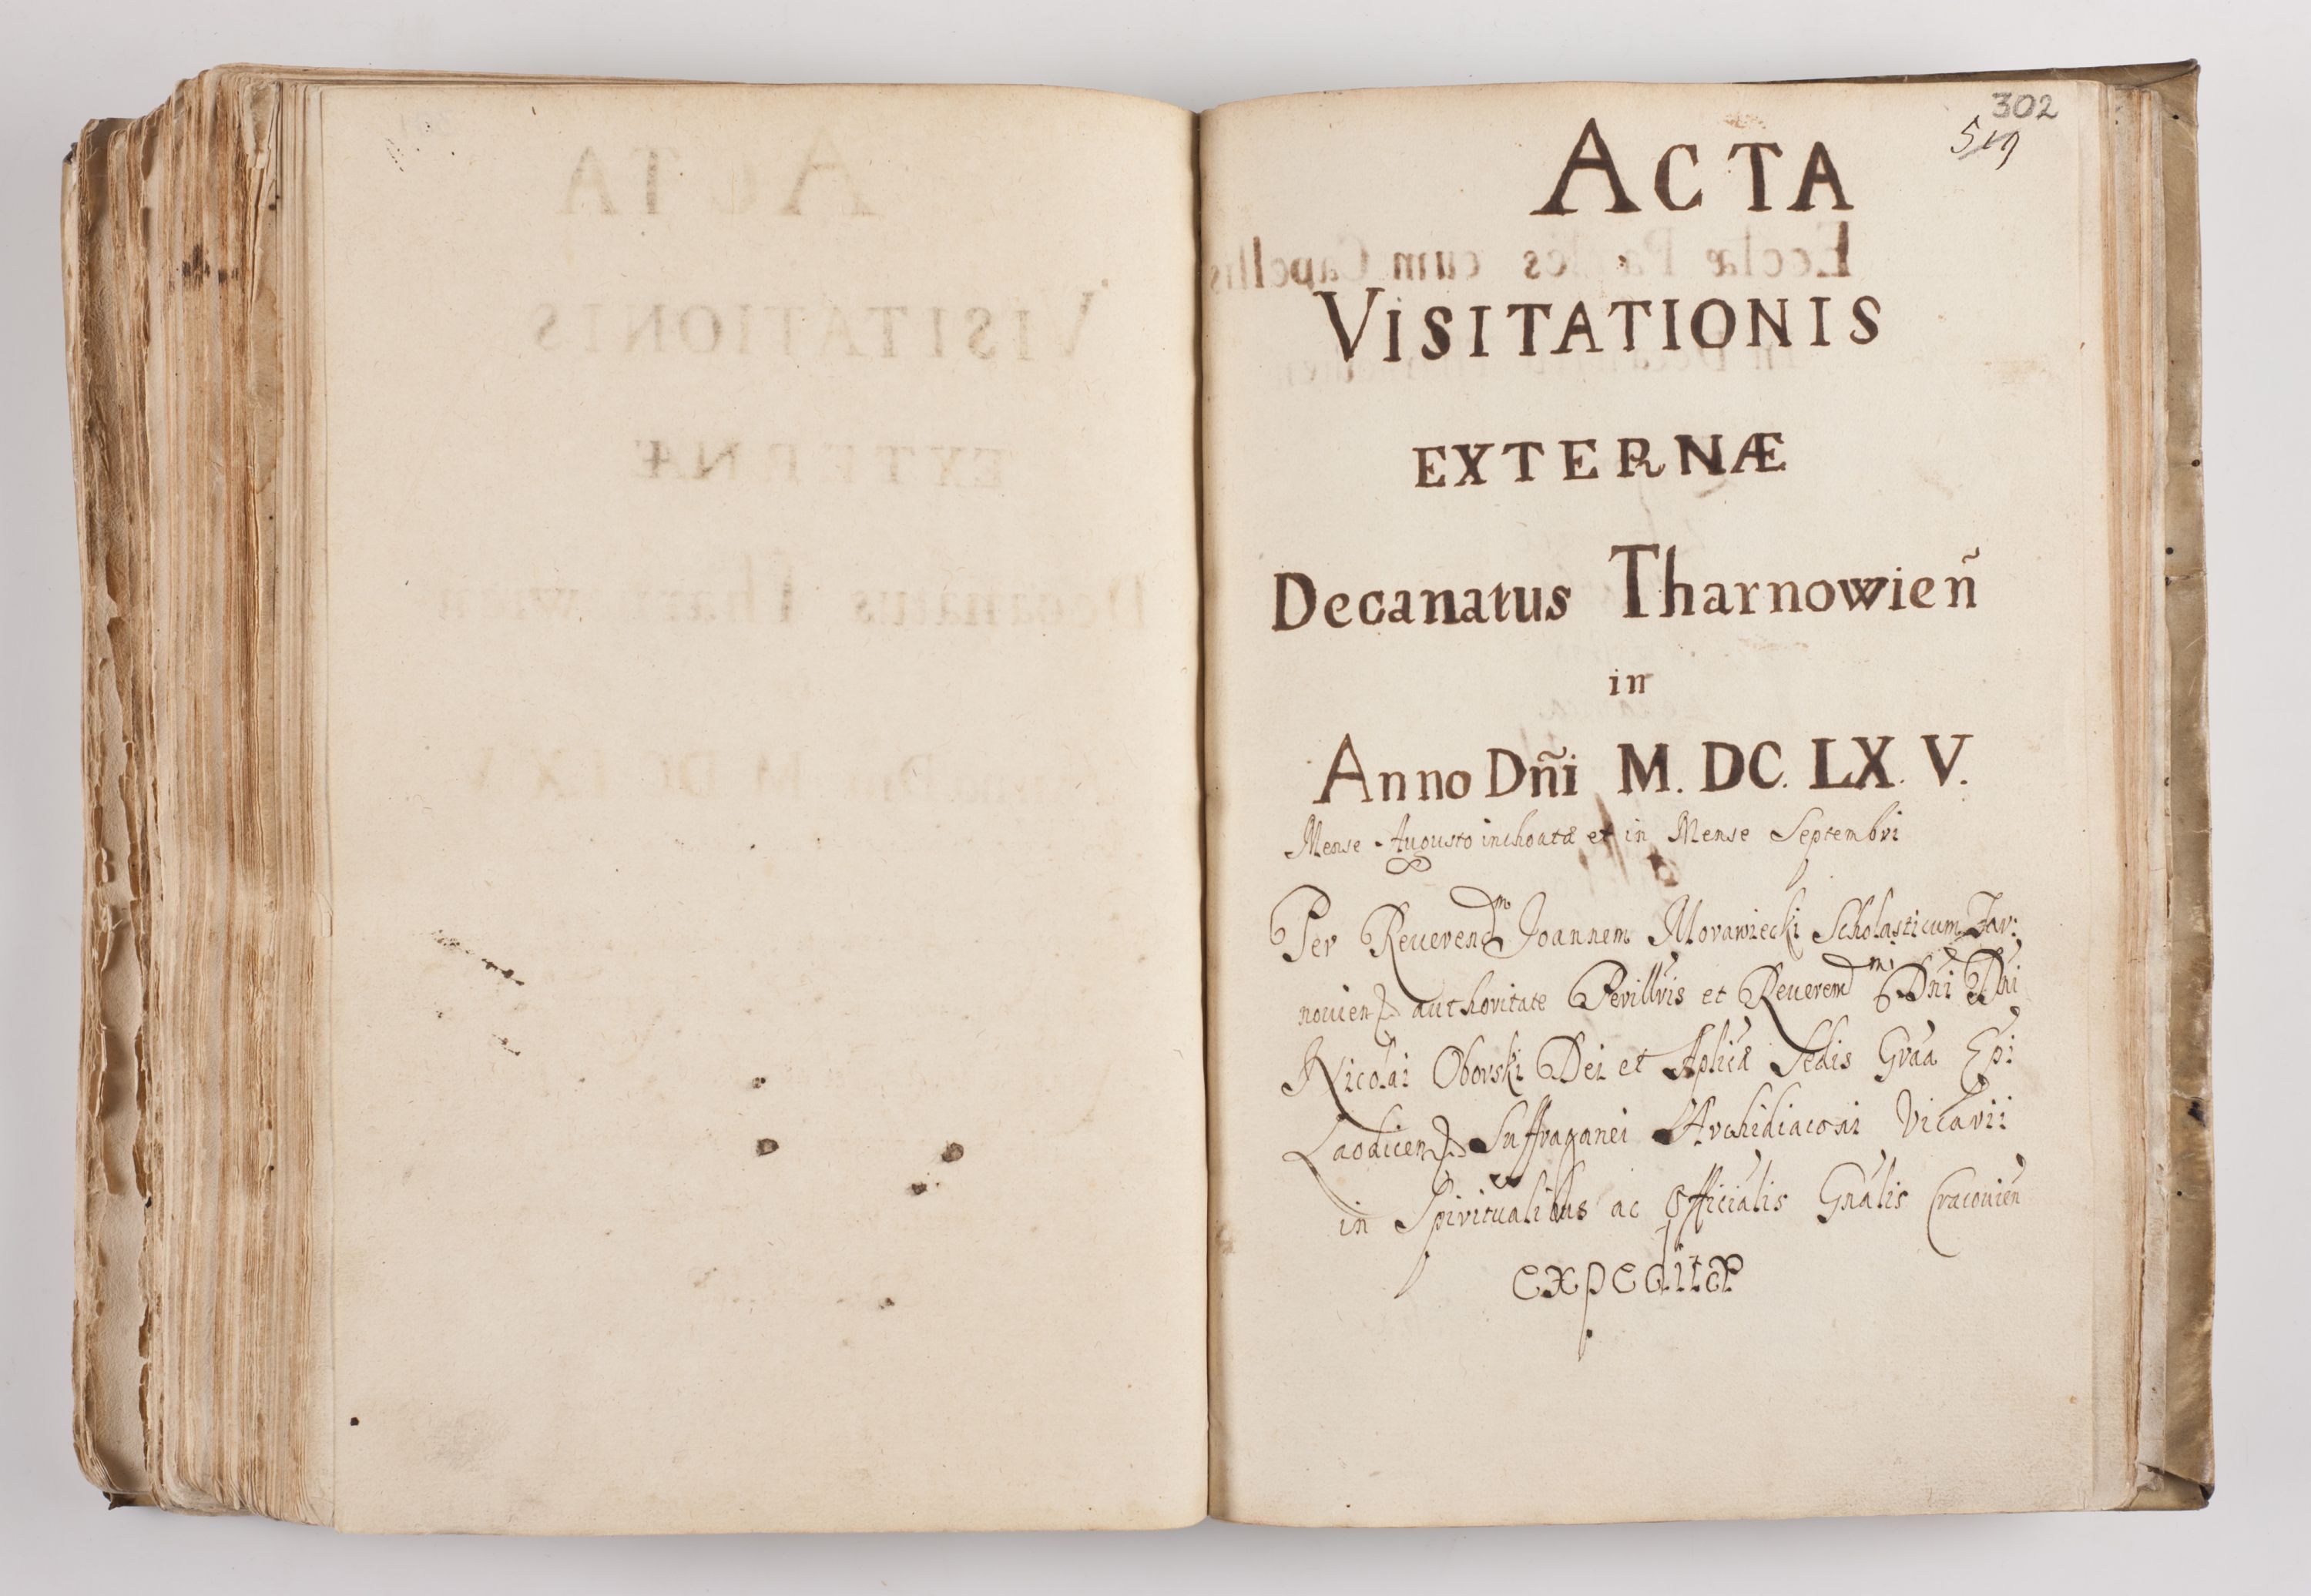 302
ACTA
VISITATIONIS
EXTERNÆ
Decanatus Tharnowien̄
in
Anno Dn̄i M. DC. LX. V.
Mense Augusto inchoatæ et in Mense Septembri
Per Reuerendm Joannem Morawiecki Scholasticum Tar:
nouien authoritate Perillris et Reuerendmi Dni Dni
Nicolai Oborski Dei et Aplicæ Sedis Graa Epi
Laodicen Suffraganei Archidiaconi Vicarii
in Spiritualibus ac Officialis Gnalis Cracouien
expeditæ